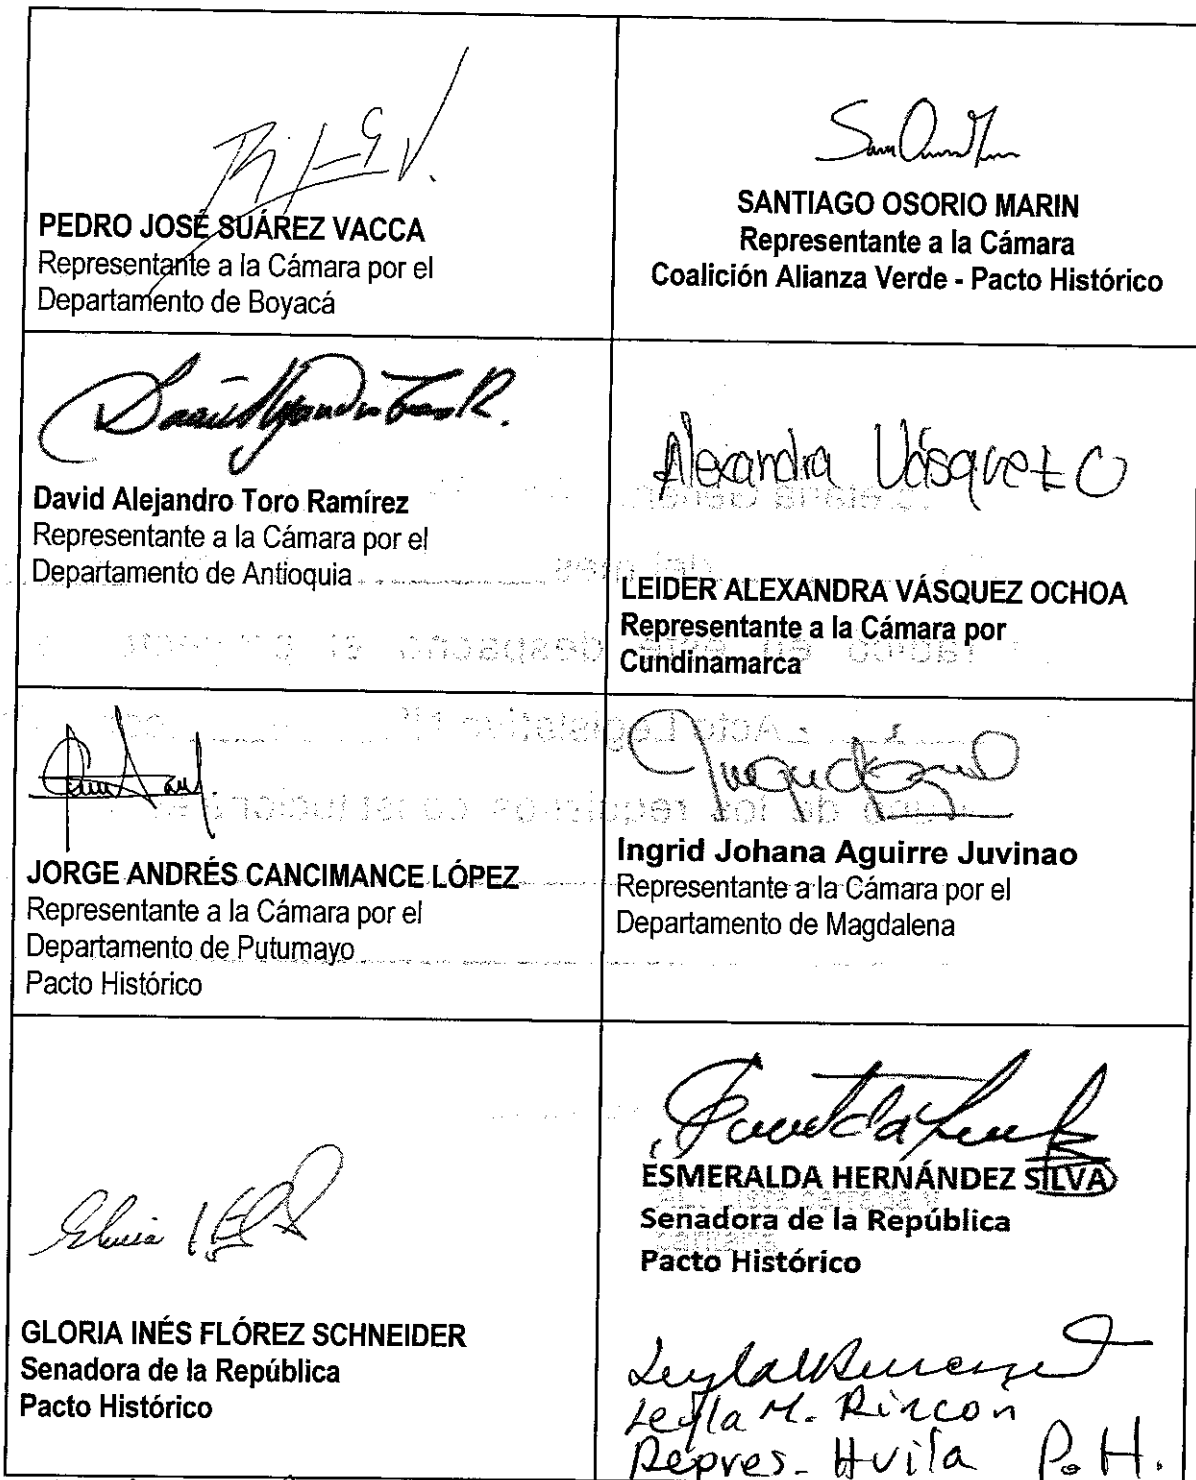 PEDRO JOSÉ SUÁREZ VACCA
Representante a la Cámara por el
Departamento de Boyacá
SANTIAGO OSORIO MARIN
Representante a la Cámara
Coalición Alianza Verde - Pacto Histórico
David Alejandro Toro Ramírez
Representante a la Cámara por el
Departamento de Antioquia
Alexandra Vásquez O
LEIDER ALEXANDRA VÁSQUEZ OCHOA
Representante a la Cámara por
Cundinamarca
JORGE ANDRÉS CANCIMANCE LÓPEZ
Representante a la Cámara por el
Departamento de Putumayo
Pacto Histórico
Ingrid Johana Aguirre Juvinao
Representante a la Cámara por el
Departamento de Magdalena
GLORIA INÉS FLÓREZ SCHNEIDER
Senadora de la República
Pacto Histórico
ESMERALDA HERNÁNDEZ SILVA
Senadora de la República
Pacto Histórico
Leyla M. Rincón
Repres. Huila P.H.